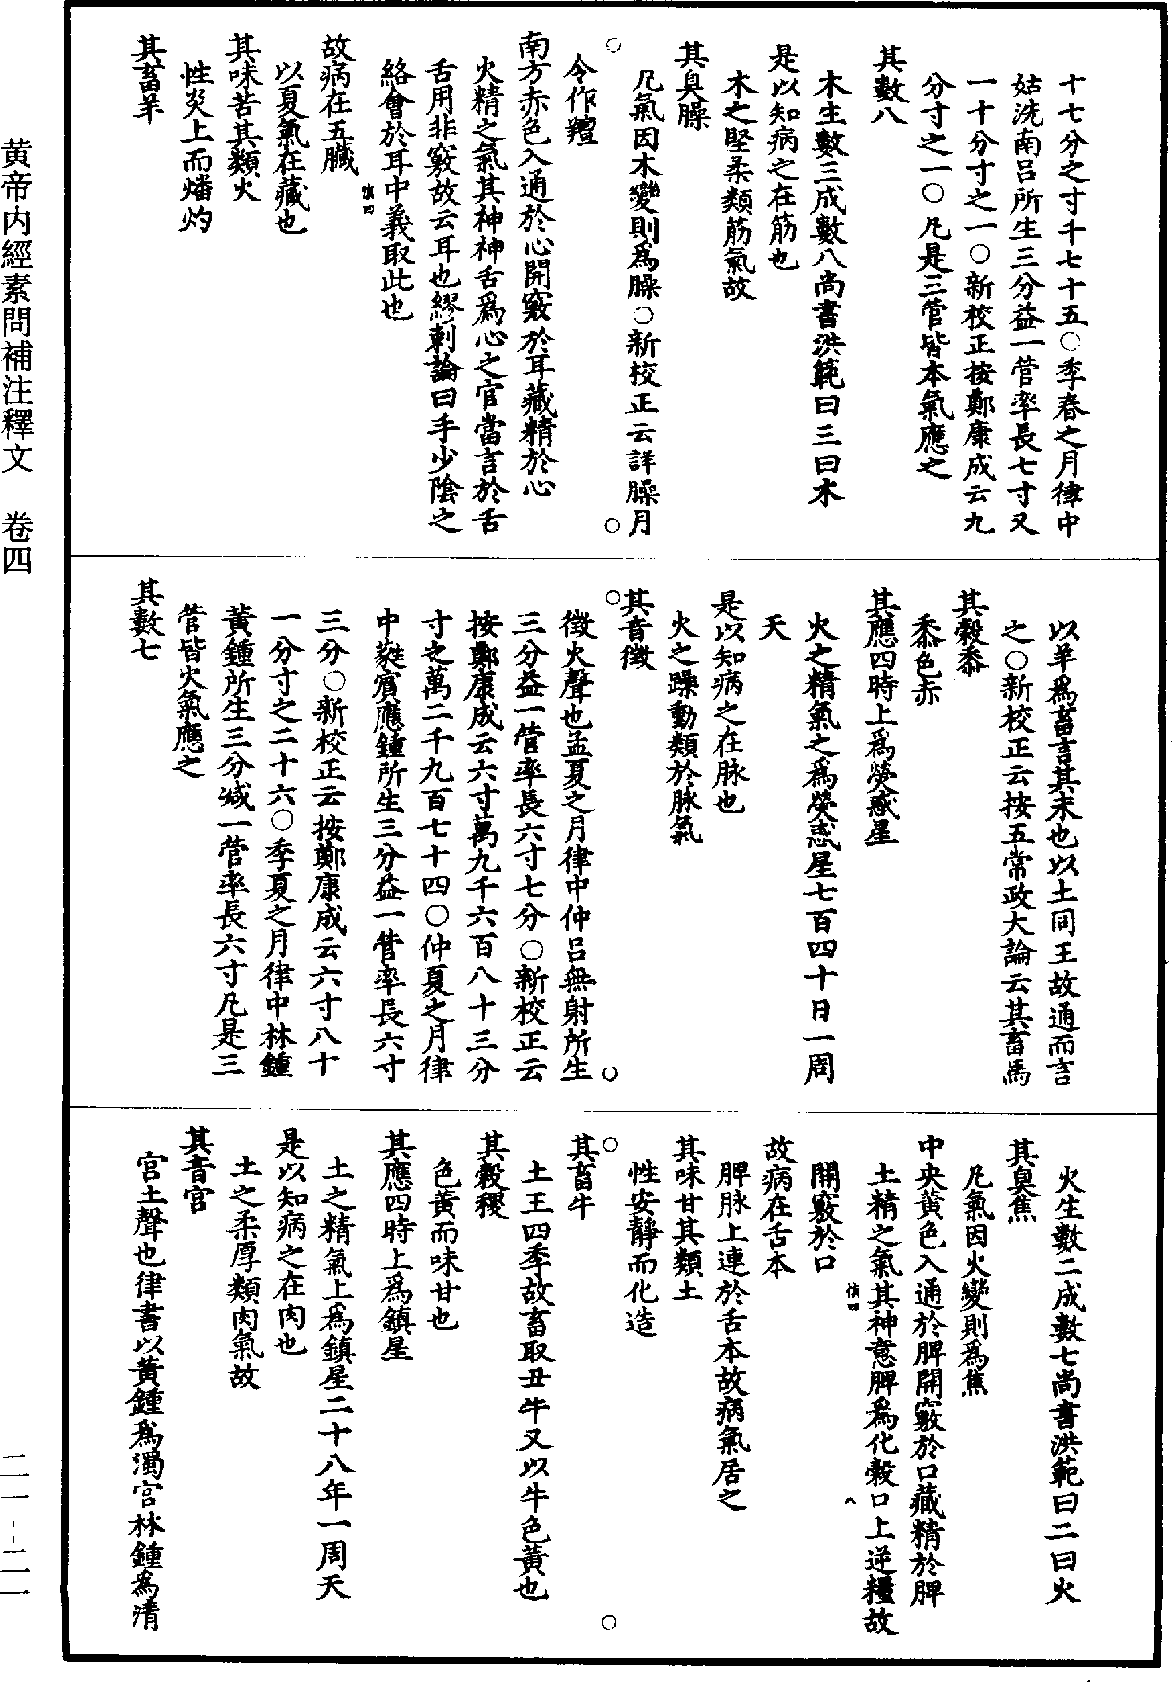 十七分之寸千七十五○季春之月律中
姑洗南呂所生三分益一管率長七寸又
一十分寸之一○新校正按鄭康成云九
分寸之一○凡是三管皆本氣應之
其數八
木生數三成數八尚書洪範曰三曰木
是以知病之在筋也
木之堅柔類筋氣故
其臭臊
凡氣因木變則爲臊○新校正云詳臊月
令作羶
南方赤色入通於心開竅於耳藏精於心
火精之氣其神神舌爲心之官當言於舌
舌用非竅故云耳也繆刺論曰手少陰之
絡會於耳中義取此也
故病在五臟
以夏氣在藏也
其味苦其類火
性炎上而燔灼
其畜羊
以羊爲畜言其未也以土同王故通而言
之○新校正云按五常政大論云其畜馬
其穀黍
黍色赤
其應四時上爲熒惑星
火之精氣之爲熒惑星七百四十日一周
天
是以知病之在脉也
火之躁動類於脉氣
其音徵
徵火聲也孟夏之月律中仲呂無射所生
三分益一管率長六寸七分○新校正云
按鄭康成云六寸萬九千六百八十三分
寸之萬二千九百七十四○仲夏之月律
中蕤賓應鍾所生三分益一管率長六寸
三分○新校正云按鄭康成云六寸八十
一分寸之二十六○季夏之月律中林鍾
黃鍾所生三分減一管率長六寸凡是三
管皆火氣應之
其數七
火生數二成數七尚書洪範曰二曰火
其臭焦
凡氣因火變則爲焦
中央黃色入通於脾開竅於口藏精於脾
土精之氣其神意脾爲化穀口上逆糧故
開竅於口
故病在舌本
脾脉上連於舌本故病氣居之
其味甘其類土
性安靜而化造
其畜牛
土王四季故畜取丑牛又以牛色黃也
其穀稷
色黃而味甘也
其應四時上爲鎮星
土之精氣上爲鎮星二十八年一周天
是以知病之在肉也
土之柔厚類肉氣故
其音宮
宮土聲也律書以黃鍾爲濁宮林鍾爲清
黃帝内經素問補注釋文　卷四
二一-二一